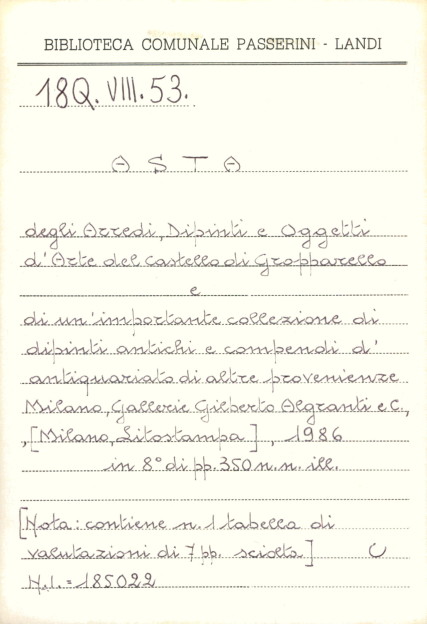 BIBLIOTECA COMUNALE PASSERINI - LANDI
18Q. VIII. 53.
A S T A
degli Arredi, Dipinti e Oggetti
d'Arte del castello di Gropparello
e
di un'importante collezione di
dipinti antichi e compendi d'
antiquariato di altre provenienze
Milano, Gallerie Gilberto Algranti e C.,
, [Milano, Litostampa], 1986
in 8° di pp. 350 n. n. ill.
[Nota: contiene n. 1 tabella di
valutazioni di 7 pp. sciolta] C
N.I. = 185022